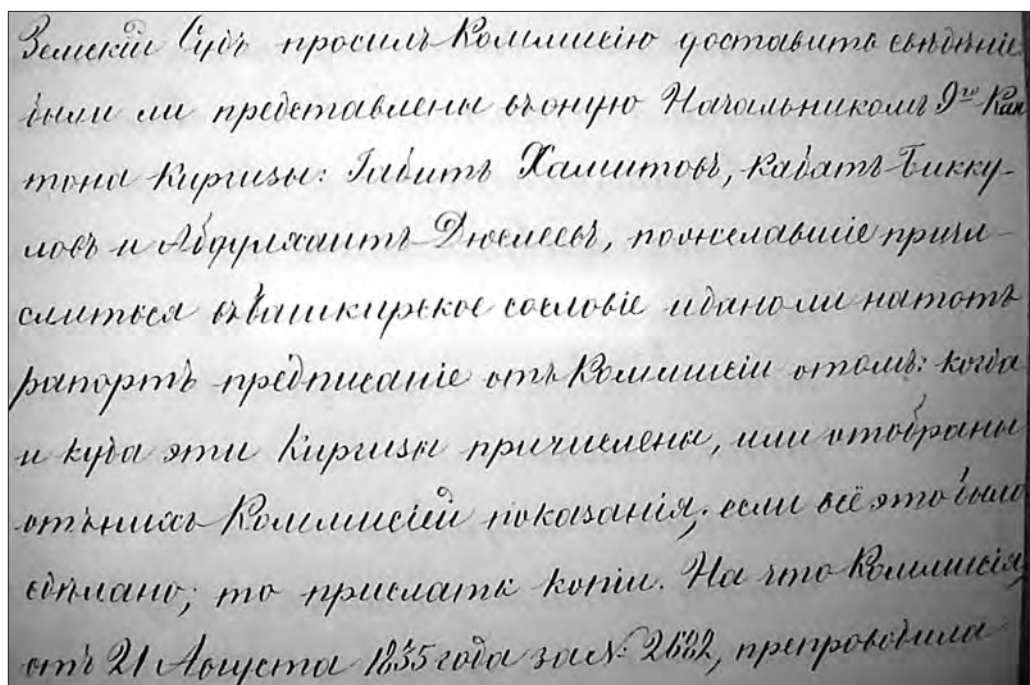 Земскій Судъ просилъ Коммисію доставить свѣдѣніе
были ли представлены въ оную Начальникомъ 9го Кан
тона Киргизы: Габитъ Хамитовъ, Кабатъ Бикку-
ловъ и Абдулхаитъ Дюслеевъ, пожелавшіе причи-
слиться въ Башкирское сословіе и дано ли на тотъ
рапортъ предписаніе отъ Коммисіи о томъ: когда
и куда эти Киргизы причислены, или отобраны
отъ нихъ Коммисіей показанія; если всё это было
сдѣлано; то прислать копіи. На что Коммисія,
отъ 21 Августа 1835 года за № 2682, препроводила